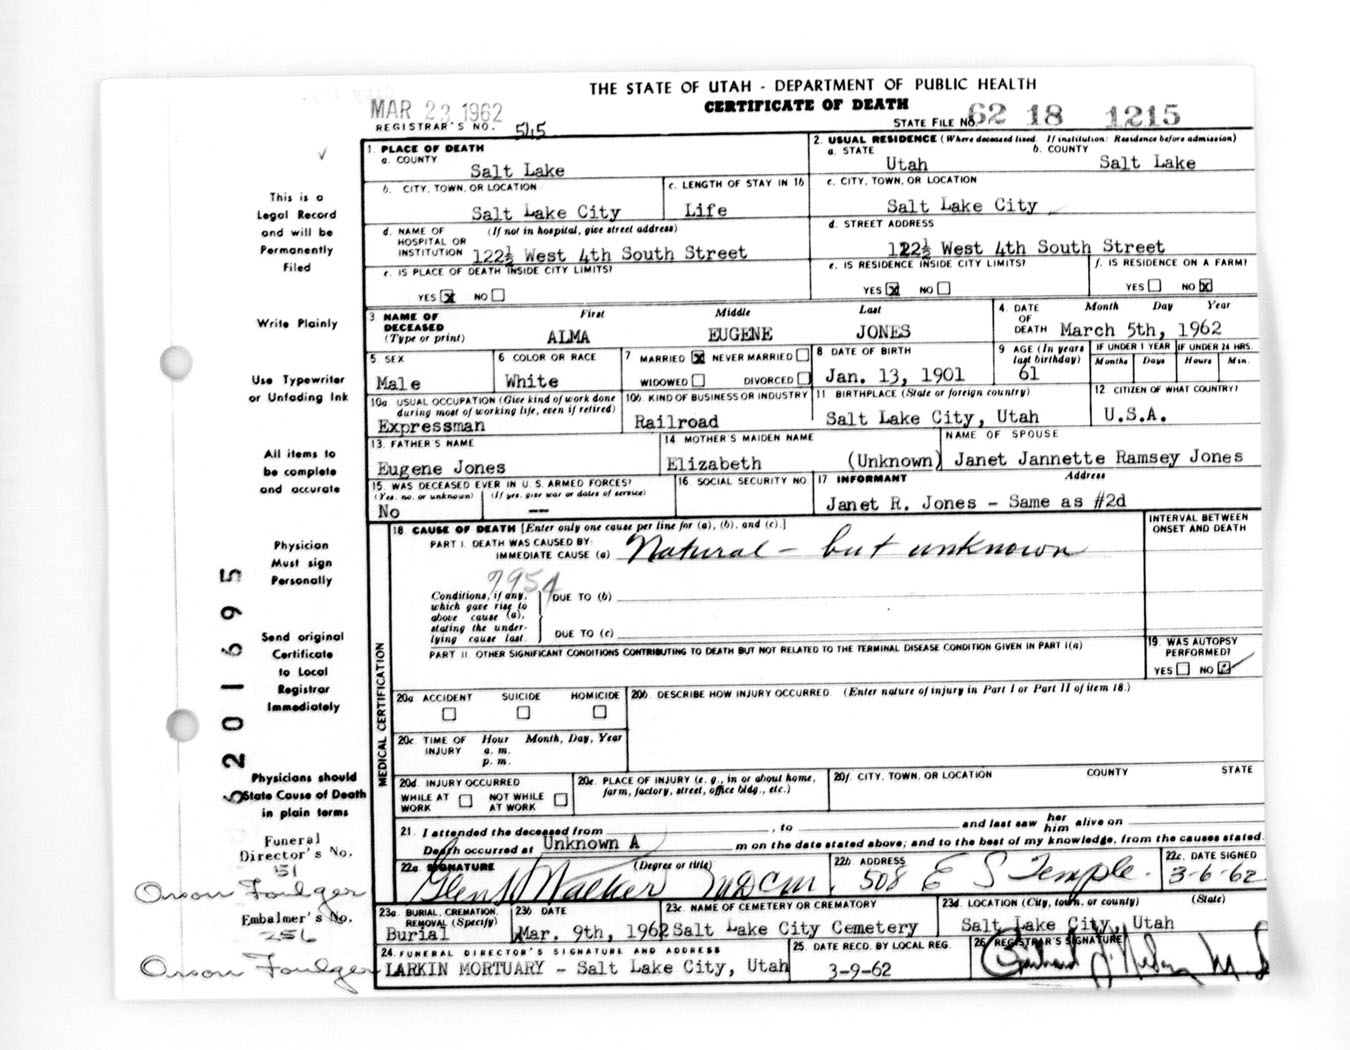 THE STATE OF UTAH - DEPARTMENT OF PUBLIC HEALTH
CERTIFICATE OF DEATH
MAR 23 1962
REGISTRAR'S NO. 545
STATE FILE NO. 62 18 1215
1. PLACE OF DEATH
a. COUNTY
Salt Lake
2. USUAL RESIDENCE (Where deceased lived. If institution: Residence before admission)
a. STATE b. COUNTY
Utah Salt Lake
b. CITY, TOWN, OR LOCATION
Salt Lake City
c. LENGTH OF STAY IN 1b
Life
c. CITY, TOWN, OR LOCATION
Salt Lake City
d. NAME OF (If not in hospital, give street address)
HOSPITAL OR
INSTITUTION 122½ West 4th South Street
d. STREET ADDRESS
122½ West 4th South Street
e. IS PLACE OF DEATH INSIDE CITY LIMITS?
YES X NO
e. IS RESIDENCE INSIDE CITY LIMITS?
YES X NO
f. IS RESIDENCE ON A FARM?
YES NO X
3 NAME OF First Middle Last
DECEASED
(Type or print) ALMA EUGENE JONES
4. DATE Month Day Year
OF
DEATH March 5th, 1962
5 SEX
Male
6 COLOR OR RACE
White
7 MARRIED X NEVER MARRIED
WIDOWED DIVORCED
8 DATE OF BIRTH
Jan. 13, 1901
9 AGE (In years
last birthday)
61
IF UNDER 1 YEAR IF UNDER 24 HRS.
Months Days Hours Min.
10a USUAL OCCUPATION (Give kind of work done
during most of working life, even if retired)
Expressman
10b. KIND OF BUSINESS OR INDUSTRY
Railroad
11 BIRTHPLACE (State or foreign country)
Salt Lake City, Utah
12 CITIZEN OF WHAT COUNTRY?
U.S.A.
13. FATHER'S NAME
Eugene Jones
14 MOTHER'S MAIDEN NAME
Elizabeth (Unknown)
NAME OF SPOUSE
Janet Jannette Ramsey Jones
15. WAS DECEASED EVER IN U.S. ARMED FORCES?
(Yes, no, or unknown) (If yes, give war or dates of service)
No --
16 SOCIAL SECURITY NO.
17 INFORMANT Address
Janet R. Jones - Same as #2d
18 CAUSE OF DEATH [Enter only one cause per line for (a), (b), and (c).]
INTERVAL BETWEEN
ONSET AND DEATH
PART I. DEATH WAS CAUSED BY:
IMMEDIATE CAUSE (a) Natural - but unknown
7954
Conditions, if any,
which gave rise to
above cause (a),
stating the under-
lying cause last.
DUE TO (b)
DUE TO (c)
PART II. OTHER SIGNIFICANT CONDITIONS CONTRIBUTING TO DEATH BUT NOT RELATED TO THE TERMINAL DISEASE CONDITION GIVEN IN PART I(a)
19. WAS AUTOPSY
PERFORMED?
YES NO
MEDICAL CERTIFICATION
20a. ACCIDENT SUICIDE HOMICIDE
20b. DESCRIBE HOW INJURY OCCURRED. (Enter nature of injury in Part I or Part II of item 18.)
20c. TIME OF Hour Month, Day, Year
INJURY a. m.
p. m.
20d INJURY OCCURRED
WHILE AT NOT WHILE
WORK AT WORK
20e. PLACE OF INJURY (e. g., in or about home,
farm, factory, street, office bldg., etc.)
20f. CITY, TOWN, OR LOCATION COUNTY STATE
21. I attended the deceased from , to and last saw her him alive on
Death occurred at Unknown A m on the date stated above; and to the best of my knowledge, from the causes stated.
22a. SIGNATURE (Degree or title)
Glen Walker MDCM.
22b ADDRESS
508 E S Temple.
22c. DATE SIGNED
3-6-62
23a. BURIAL, CREMATION,
REMOVAL (Specify)
Burial
23b DATE
Mar. 9th, 1962
23c NAME OF CEMETERY OR CREMATORY
Salt Lake City Cemetery
23d. LOCATION (City, town, or county) (State)
Salt Lake City, Utah
24 FUNERAL DIRECTOR'S SIGNATURE AND ADDRESS
LARKIN MORTUARY - Salt Lake City, Utah
25. DATE RECD. BY LOCAL REG.
3-9-62
26 REGISTRAR'S SIGNATURE
This is a
Legal Record
and will be
Permanently
Filed
Write Plainly
Use Typewriter
or Unfading Ink
All items to
be complete
and accurate
Physician
Must sign
Personally
Send original
Certificate
to Local
Registrar
Immediately
Physicians should
State Cause of Death
in plain terms
Funeral
Director's No.
51
Orson Foulger
Embalmer's No.
256
Orson Foulger
5201695